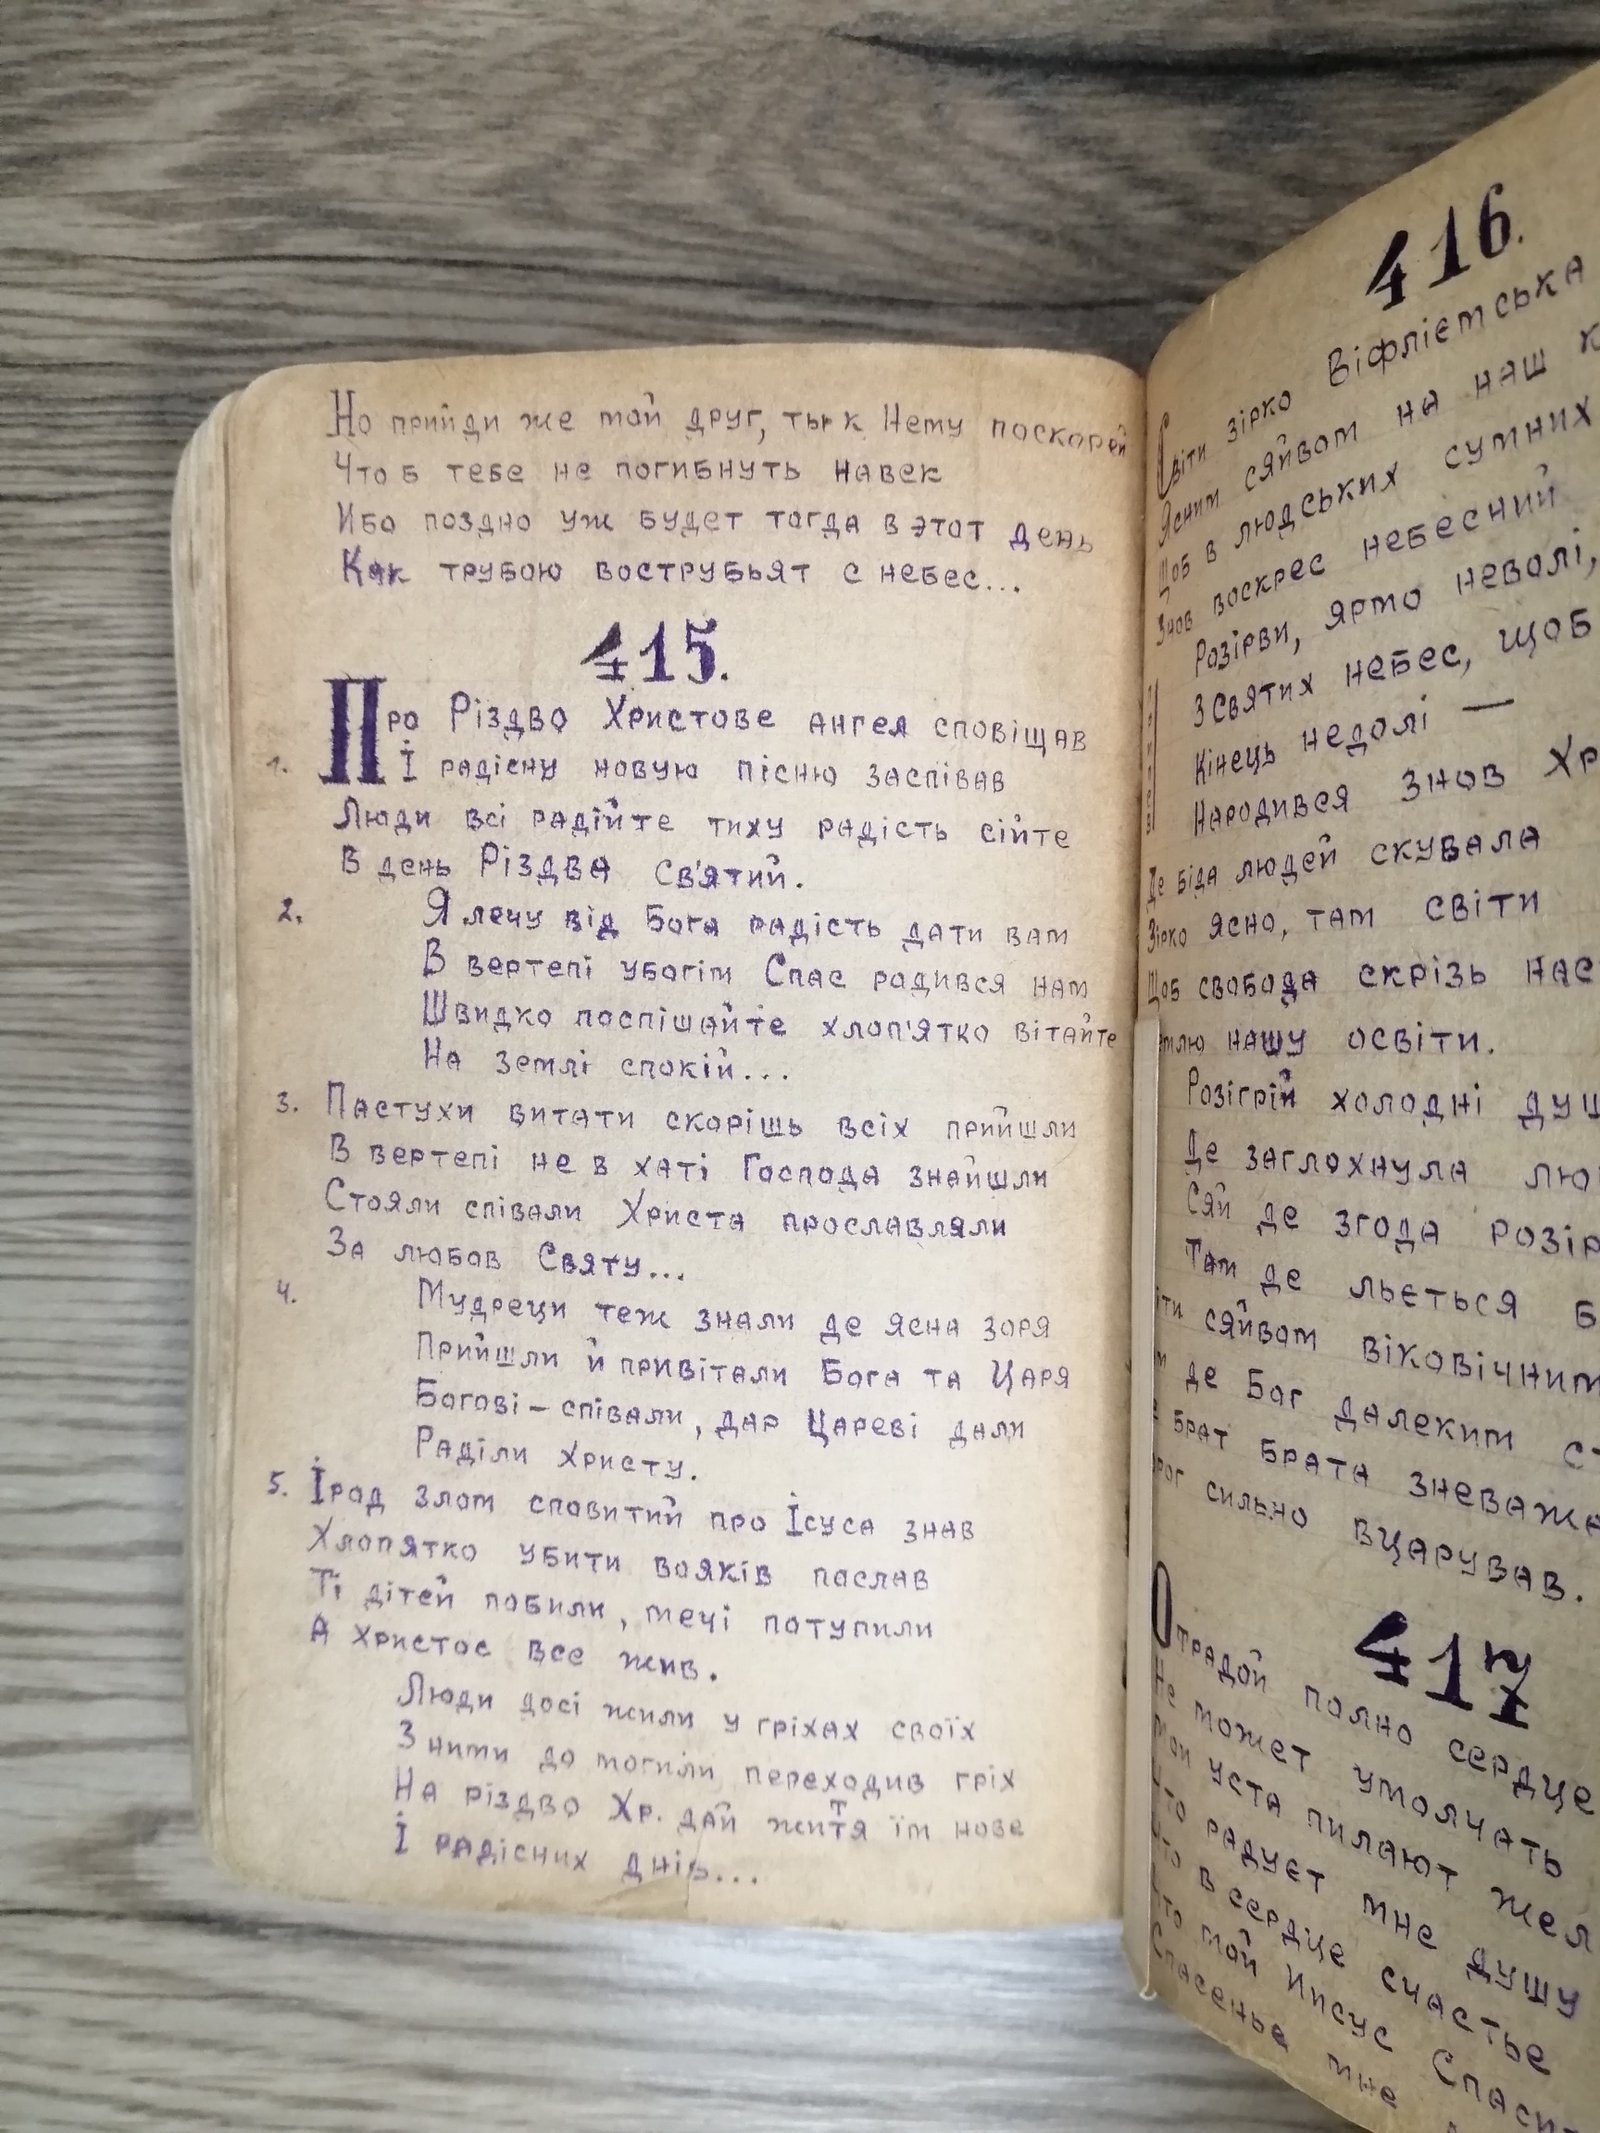 Но прийди же мой друг, ты к Нему поскорей
Чтоб тебе не погибнуть навек
Ибо поздно уж будет тогда в этот день
Как трубою вострубьят с небес...
415.
Про Різдво Христове ангел сповіщав
1. І радісну новую пісню заспівав
Люди всі радійте тиху радість сійте
В день Різдва Св'ятий.
2. Я лечу від Бога радість дати вам
В вертепі убогім Спас родився нам
Швидко поспішайте хлоп'ятко вітайте
На землі спокій...
3. Пастухи витати скорішь всіх прийшли
В вертепі не в хаті Господа знайшли
Стояли співали Христа прославляли
За любов Святу...
4. Мудреци теж знали де ясна зоря
Прийшли й привітали Бога та Царя
Богові – співали, дар Цареві дали
Раділи Христу.
5. Ірод злом сповитий про Ісуса знав
Хлопятко убити вояків послав
Ті дітей побили, мечі потупили
А Христос все жив.
Люди досі жили у гріхах своїх
З ними до могили переходив гріх
На різдво Хр. дай життя їм нове
І радісних днів...
416.
Світи зірко Віфлієтська
Ясним сяйвом на наш
Щоб в людських сумних
Знов воскрес небесний
Розірви, ярмо неволі,
З святих небес, щоб
Кінець недолі —
Народився знов Хр
Де біда людей скувала
Зірко ясно, там світи
Щоб свобода скрізь нас
емлю нашу освіти.
Розігрій холодні душ
Де заглохнула лю
Сяй де згода розір
Там де льється Б
іти сяйвом віковічним
м де Бог далеким ст
е брат брата зневажа
орог сильно вцарував.
417
Отрадой полно сердце
Не может умолчать
Мои уста пилают жел
Что радуєт мне душу
Что в сердце счастье
Что мой Иисус Спасит
Спасенье мне